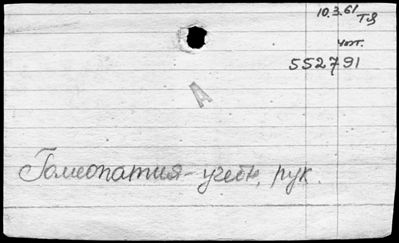 10.3.61 Тя
чит.
552791
А
Гомеопатия - учебн. рук.